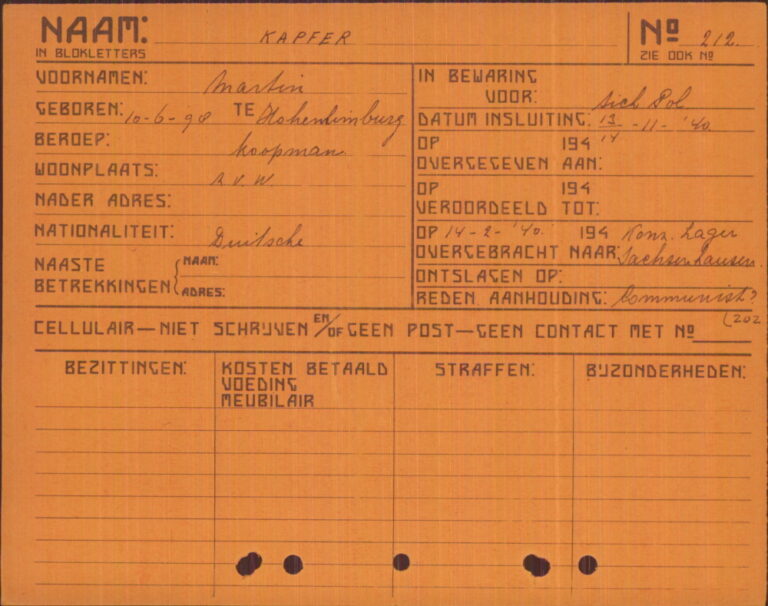 NAAM: KAPFER
IN BLOKLETTERS
Nº 212.
ZIE OOK Nº
VOORNAMEN: Martin
GEBOREN: 10-6-98 TE Hohenlimburg
BEROEP: koopman
WOONPLAATS: z.v.w.
NADER ADRES:
NATIONALITEIT: Duitsche
NAASTE BETREKKINGEN
NAAM:
ADRES:
IN BEWARING
VOOR: Sich Pol
DATUM INSLUITING: 13 -11- '40
14
OP 194
OVERGEGEVEN AAN:
OP 194
VEROORDEELD TOT:
OP 14-2-'40. 194 Konz. Lager
OVERGEBRACHT NAAR: Sachsenhausen
ONTSLAGEN OP:
REDEN AANHOUDING: Communist?
(202
CELLULAIR—NIET SCHRIJVEN EN/OF GEEN POST—GEEN CONTACT MET Nº
BEZITTINGEN:
KOSTEN BETAALD
VOEDING
MEUBILAIR
STRAFFEN:
BIJZONDERHEDEN: